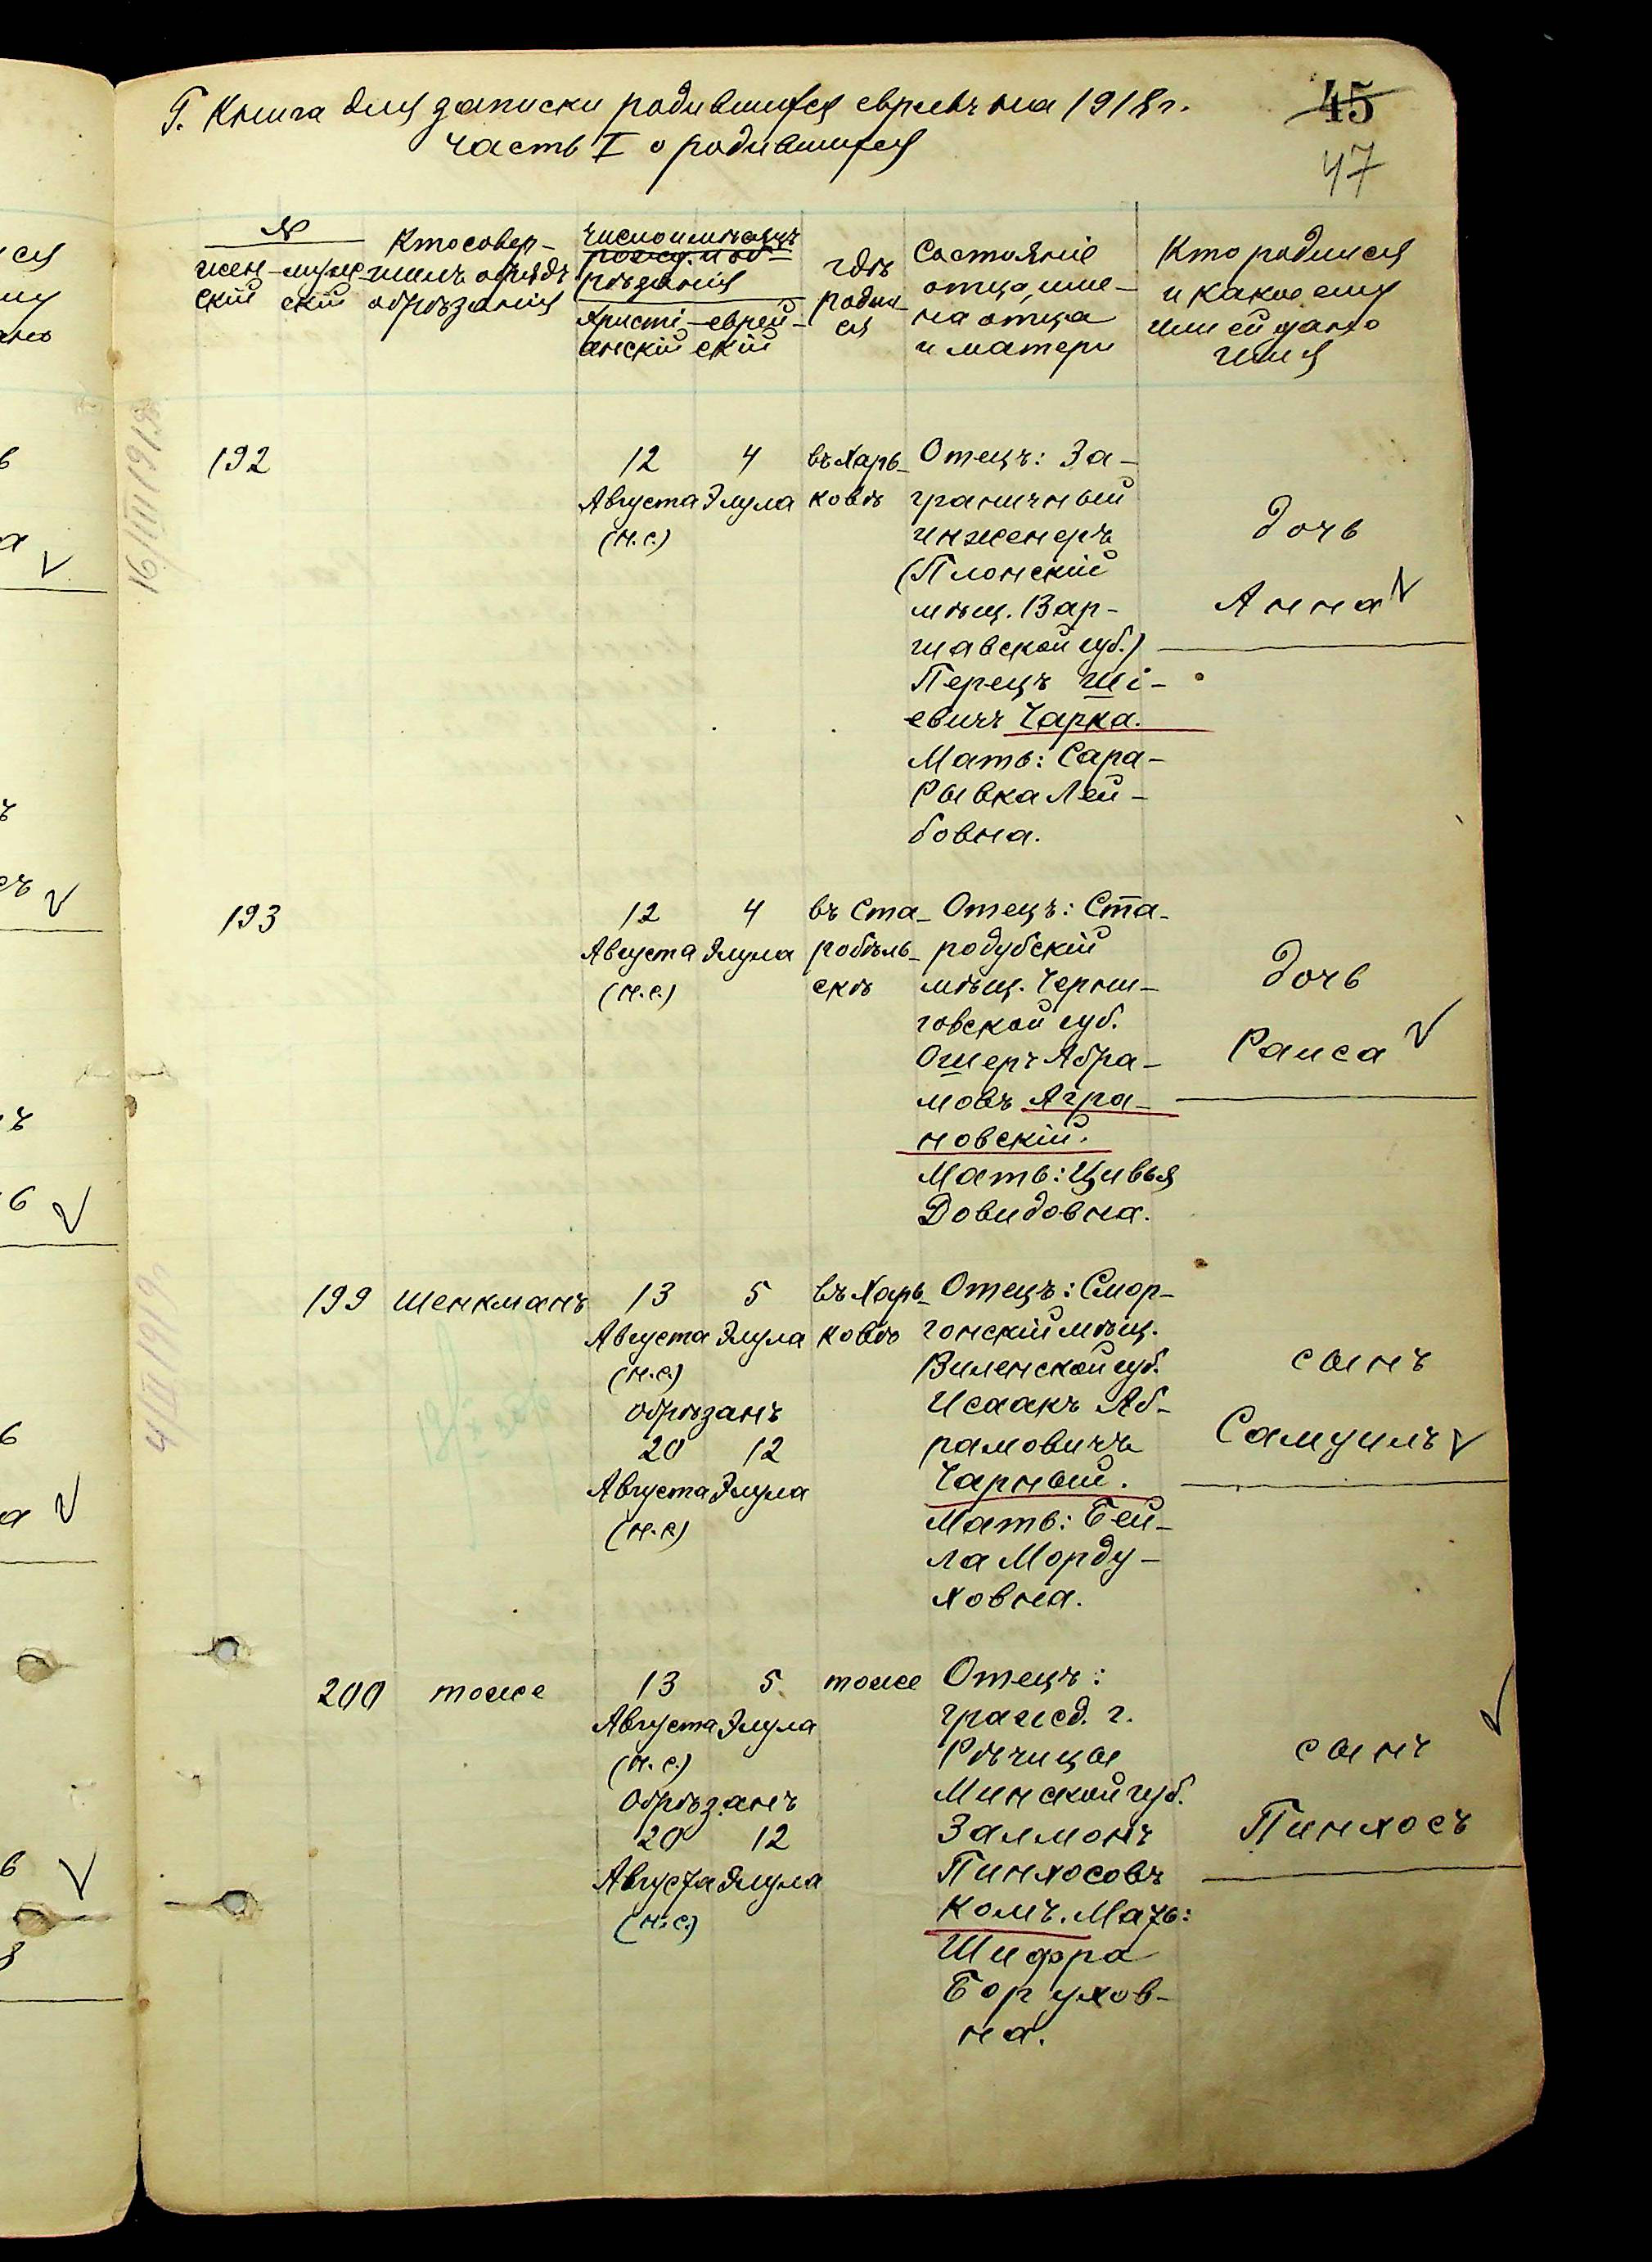 Г. Книга для записки родившихся евреевъ на 1918 г.
часть I о родившихся
45
47
№
жен-
скій
муж-
скій
Кто совер-
шилъ обрядъ
обрѣзанія
число и мѣсяцъ
рожд. и об-
рѣзанія
христі-
анскій
еврей-
скій
гдѣ
родил-
ся
Состояніе
отца, име-
на отца
и матери
Кто родился
и какое ему
или ей дано
имя
192
12 4
Августа Элула
(н.с.)
въ Харь-
ковѣ
Отецъ: За-
граничный
инженеръ
(Плонскій
мѣщ. Вар-
шавской губ.)
Перецъ Ші-
евичъ Чарка.
Мать: Сара-
Рывка Лей-
бовна.
дочь
Анна
193
12 4
Августа Элула
(н.с.)
въ Ста-
робѣль-
скѣ
Отецъ: Ста-
родубскій
мѣщ. Черни-
говской губ.
Ошеръ Абра-
мовъ Агра-
новскій.
Мать: Цивья
Довидовна.
дочь
Раиса
199 Шенкманъ
13 5
Августа Элула
(н.с.)
обрѣзанъ
20 12
Августа Элула
(н.с)
въ Харь-
ковѣ
Отецъ: Смор-
гонскій мѣщ.
Виленской губ.
Исаакъ Аб-
рамовичъ
Чарный.
Мать: Бей-
ла Морду-
ховна.
сынъ
Самуилъ
200 тоже
13 5
Августа Элула
(н.с.)
Обрѣзанъ
20 12
Августа Элула
(н.с.)
тоже
Отецъ:
гражд. г.
Рѣчицы
Минской губ.
Залмонъ
Пинхосовъ
Комъ. Мать:
Шифра
Борухов-
на.
сынъ
Пинхосъ